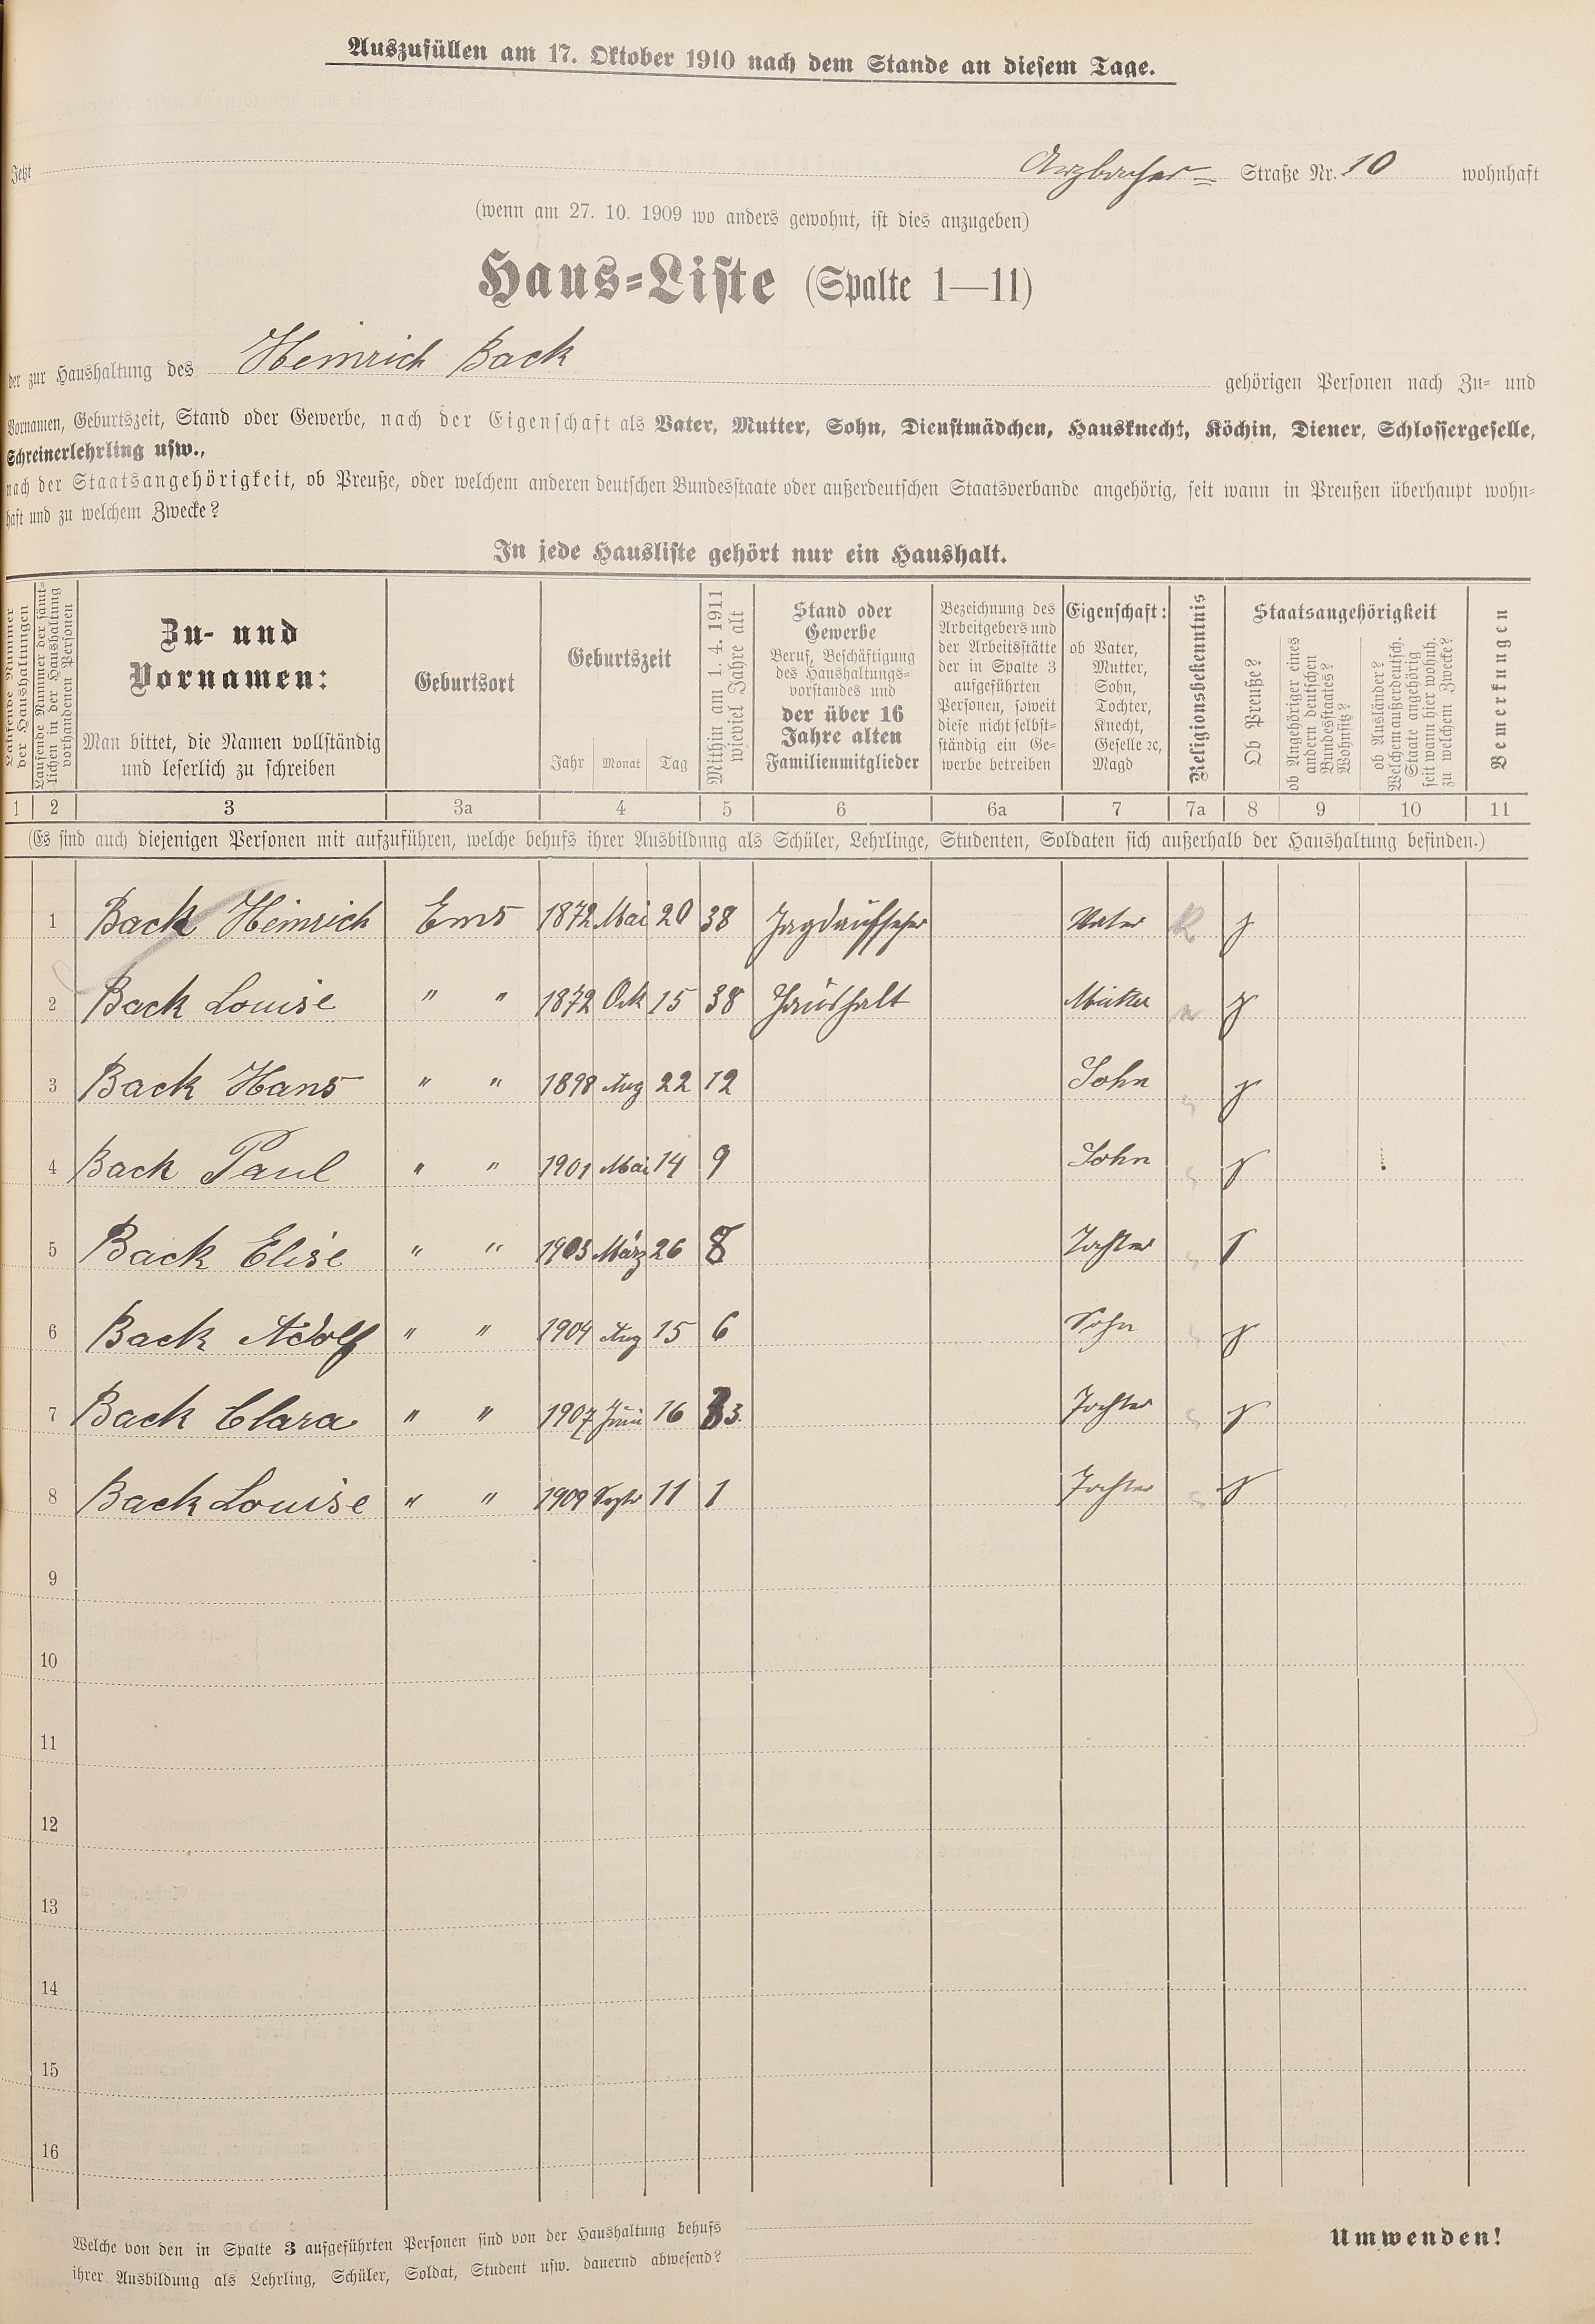 Auszufüllen am 17. Oktober 1910 nach dem Stande an diesem Tage.
Jetzt Arzbacher= Straße Nr. 10 wohnhaft
(wenn am 27. 10. 1909 wo anders gewohnt, ist dies anzugeben)
Haus=Liste (Spalte 1—11)
der zur Haushaltung des Heinrich Back gehörigen Personen nach Zu= und
Vornamen, Geburtszeit, Stand oder Gewerbe, nach der Eigenschaft als Vater, Mutter, Sohn, Dienstmädchen, Hausknecht, Köchin, Diener, Schlossergeselle,
Schreinerlehrling usw.,
nach der Staatsangehörigkeit, ob Preuße, oder welchem anderen deutschen Bundesstaate oder außerdeutschen Staatsverbande angehörig, seit wann in Preußen überhaupt wohn=
haft und zu welchem Zwecke?
In jede Hausliste gehört nur ein Haushalt.
Laufende Nummer
der Haushaltungen
Laufende Nummer der sämt=
lichen in der Haushaltung
vorhandenen Personen
Zu- und
Vornamen:
Man bittet, die Namen vollständig
und leserlich zu schreiben
Geburtsort
Geburtszeit
Jahr Monat Tag
Mithin am 1. 4. 1911
wieviel Jahre alt
Stand oder
Gewerbe
Beruf, Beschäftigung
des Haushaltungs=
vorstandes und
der über 16
Jahre alten
Familienmitglieder
Bezeichnung des
Arbeitgebers und
der Arbeitsstätte
der in Spalte 3
aufgeführten
Personen, soweit
diese nicht selbst=
ständig ein Ge=
werbe betreiben
Eigenschaft:
ob Vater,
Mutter,
Sohn,
Tochter,
Knecht,
Geselle ꝛc,
Magd
Religionsbekenntnis
Staatsangehörigkeit
Ob Preuße?
ob Angehöriger eines
andern deutschen
Bundesstaates?
Wohnsitz?
ob Ausländer?
Welchem außerdeutsch.
Staate angehörig
seit wann hier wohnh.
zu welchem Zwecke?
Bemerkungen
1 2 3 3a 4 5 6 6a 7 7a 8 9 10 11
(Es sind auch diejenigen Personen mit aufzuführen, welche behufs ihrer Ausbildung als Schüler, Lehrlinge, Studenten, Soldaten sich außerhalb der Haushaltung befinden.)
1 Back Heinrich Ems 1872 Mai 20 38 Jagdaufseher Vater
2 Back Louise " " 1872 Ock 15 38 Haushalt Mutter
3 Back Hans " " 1898 Aug 22 12 Sohn
4 Back Paul " " 1901 Mai 14 9 Sohn
5 Back Elise " " 1903 März 26 8 Tochter
6 Back Adolf " " 1904 Aug 15 6 Sohn
7 Back Clara " " 1907 Juni 16 3. Tochter
8 Back Louise " " 1909 Septr 11 1 Tochter
9
10
11
12
13
14
15
16
Welche von den in Spalte 3 aufgeführten Personen sind von der Haushaltung behufs
ihrer Ausbildung als Lehrling, Schüler, Soldat, Student usw. dauernd abwesend?
Umwenden!